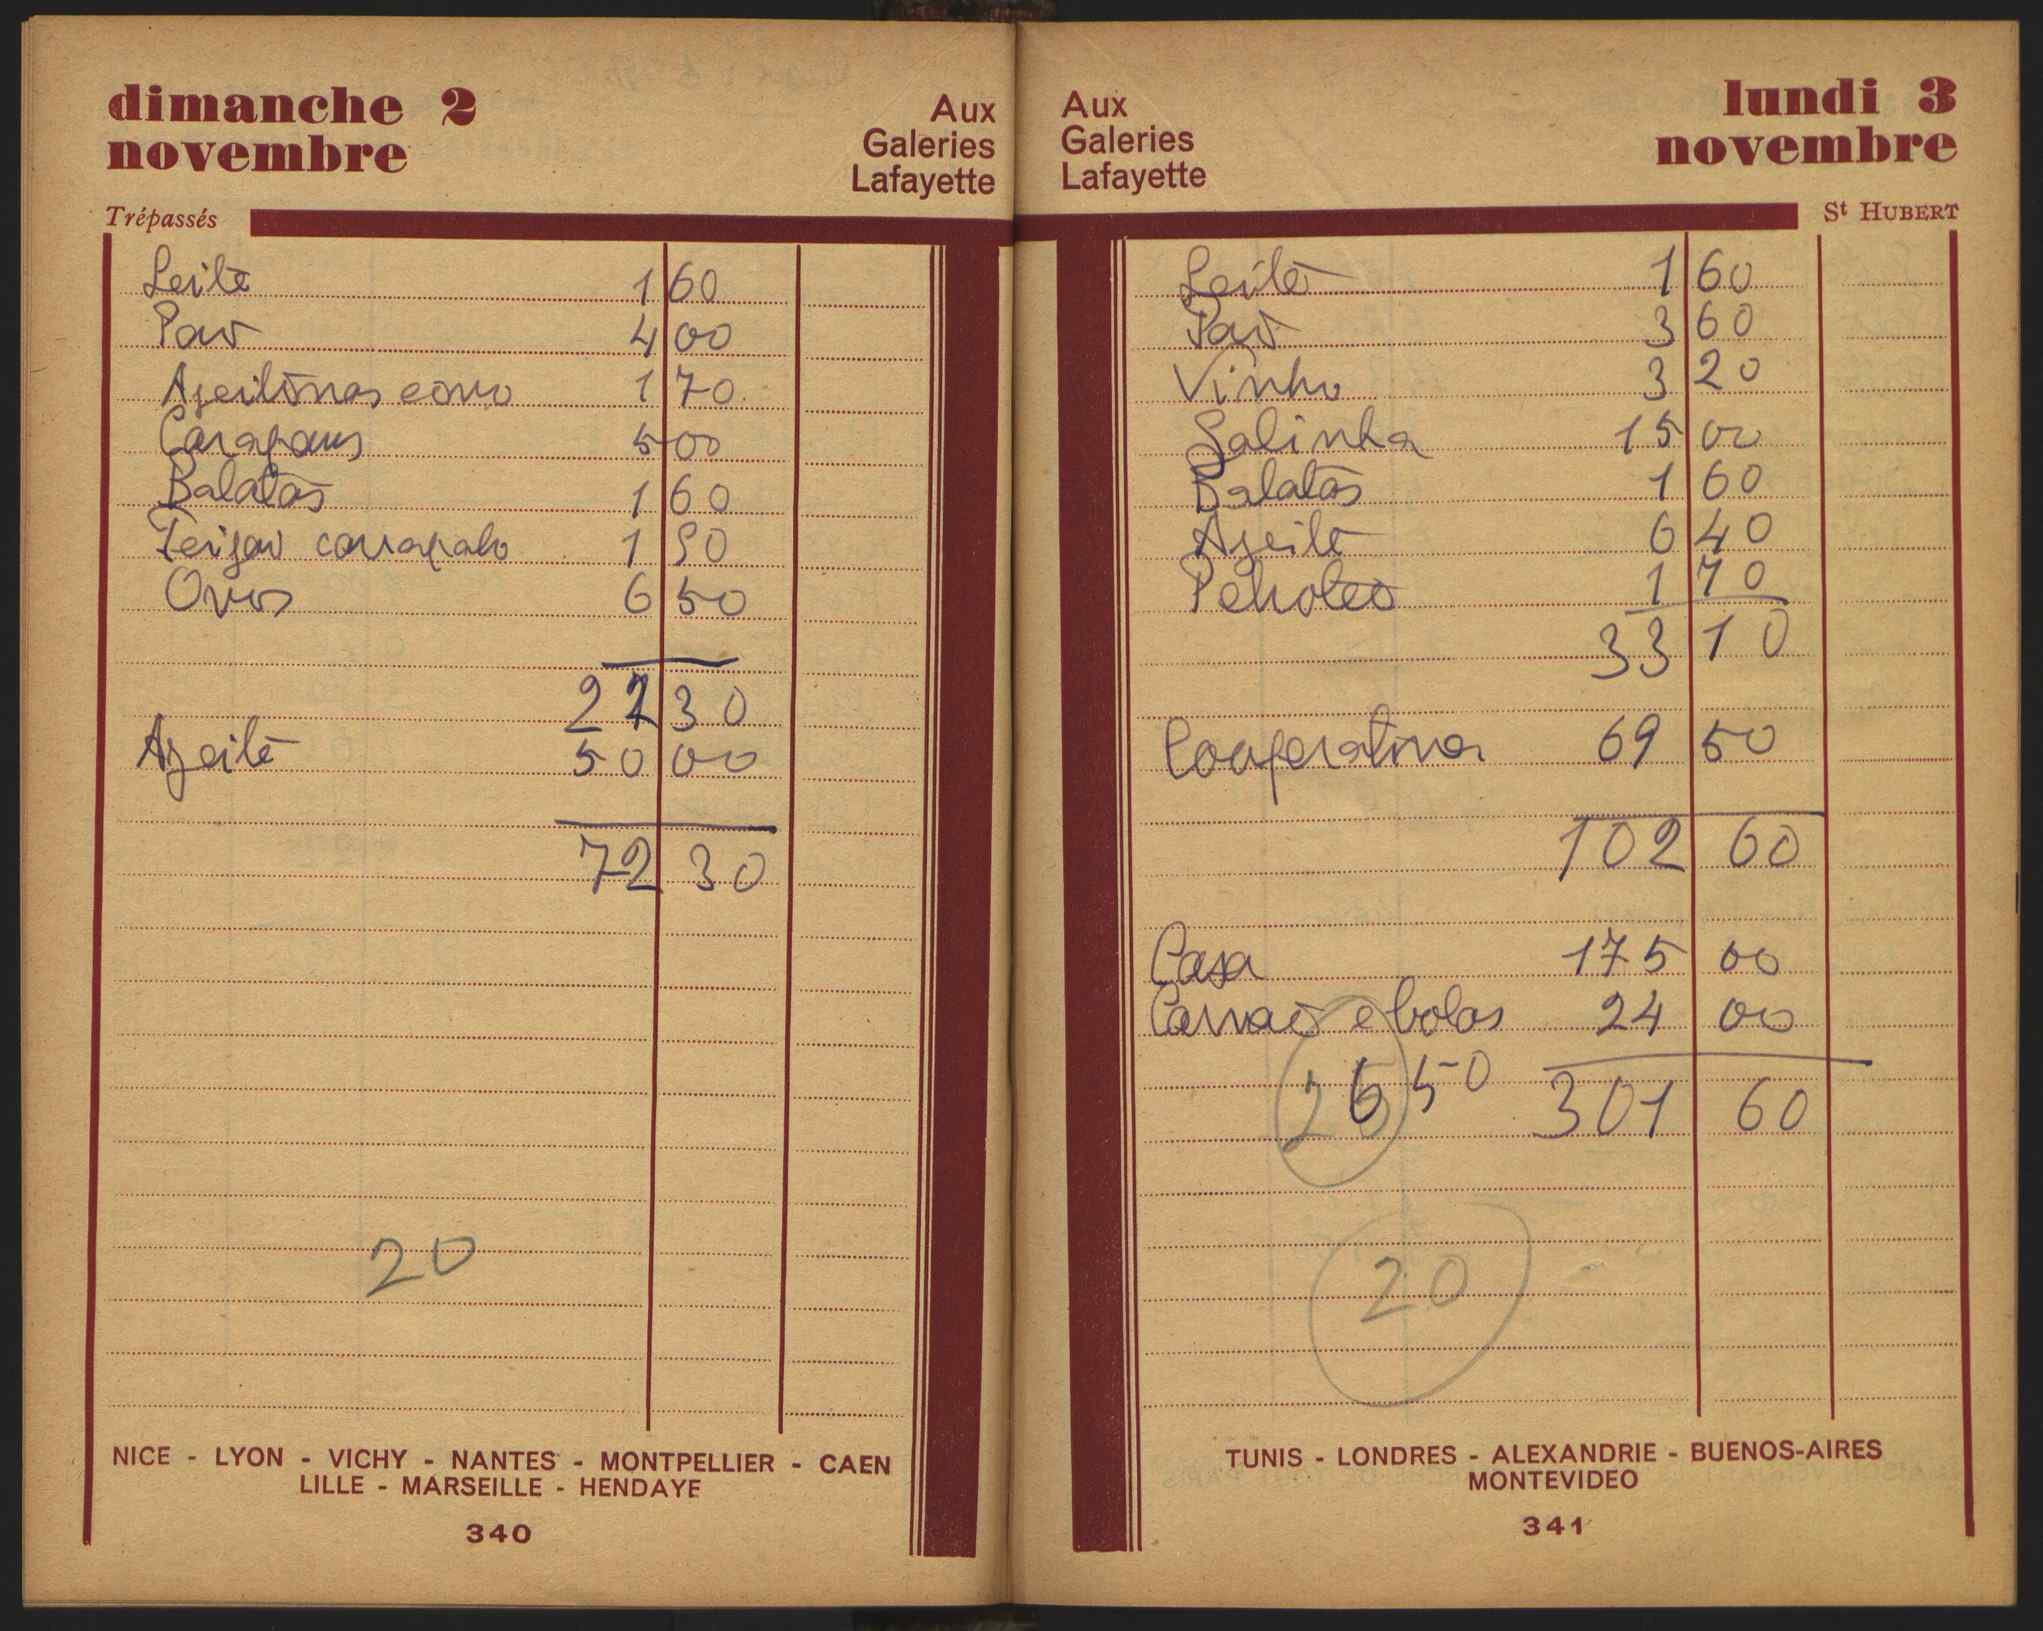 dimanche 2
novembre
Aux
Galeries
Lafayette
Trépassés
Leite 1 60
Pão 4 00
Azeitonas couro 1 70
Carapaus 5 00
Batatas 1 60
Feijão carrapato 1 90
Ovos 6 50
22 30
Azeite 50 00
72 30
20
NICE - LYON - VICHY - NANTES - MONTPELLIER - CAEN
LILLE - MARSEILLE - HENDAYE
340
Aux
Galeries
Lafayette
lundi 3
novembre
St HUBERT
Leite 1 60
Pão 3 60
Vinho 3 20
Galinha 15 00
Batatas 1 60
Azeite 6 40
Petroleo 1 70
33 10
Cooperativa 69 50
102 60
Casa 175 00
Carvão e bolas 24 00
26 50 301 60
20
TUNIS - LONDRES - ALEXANDRIE - BUENOS-AIRES
MONTEVIDEO
341